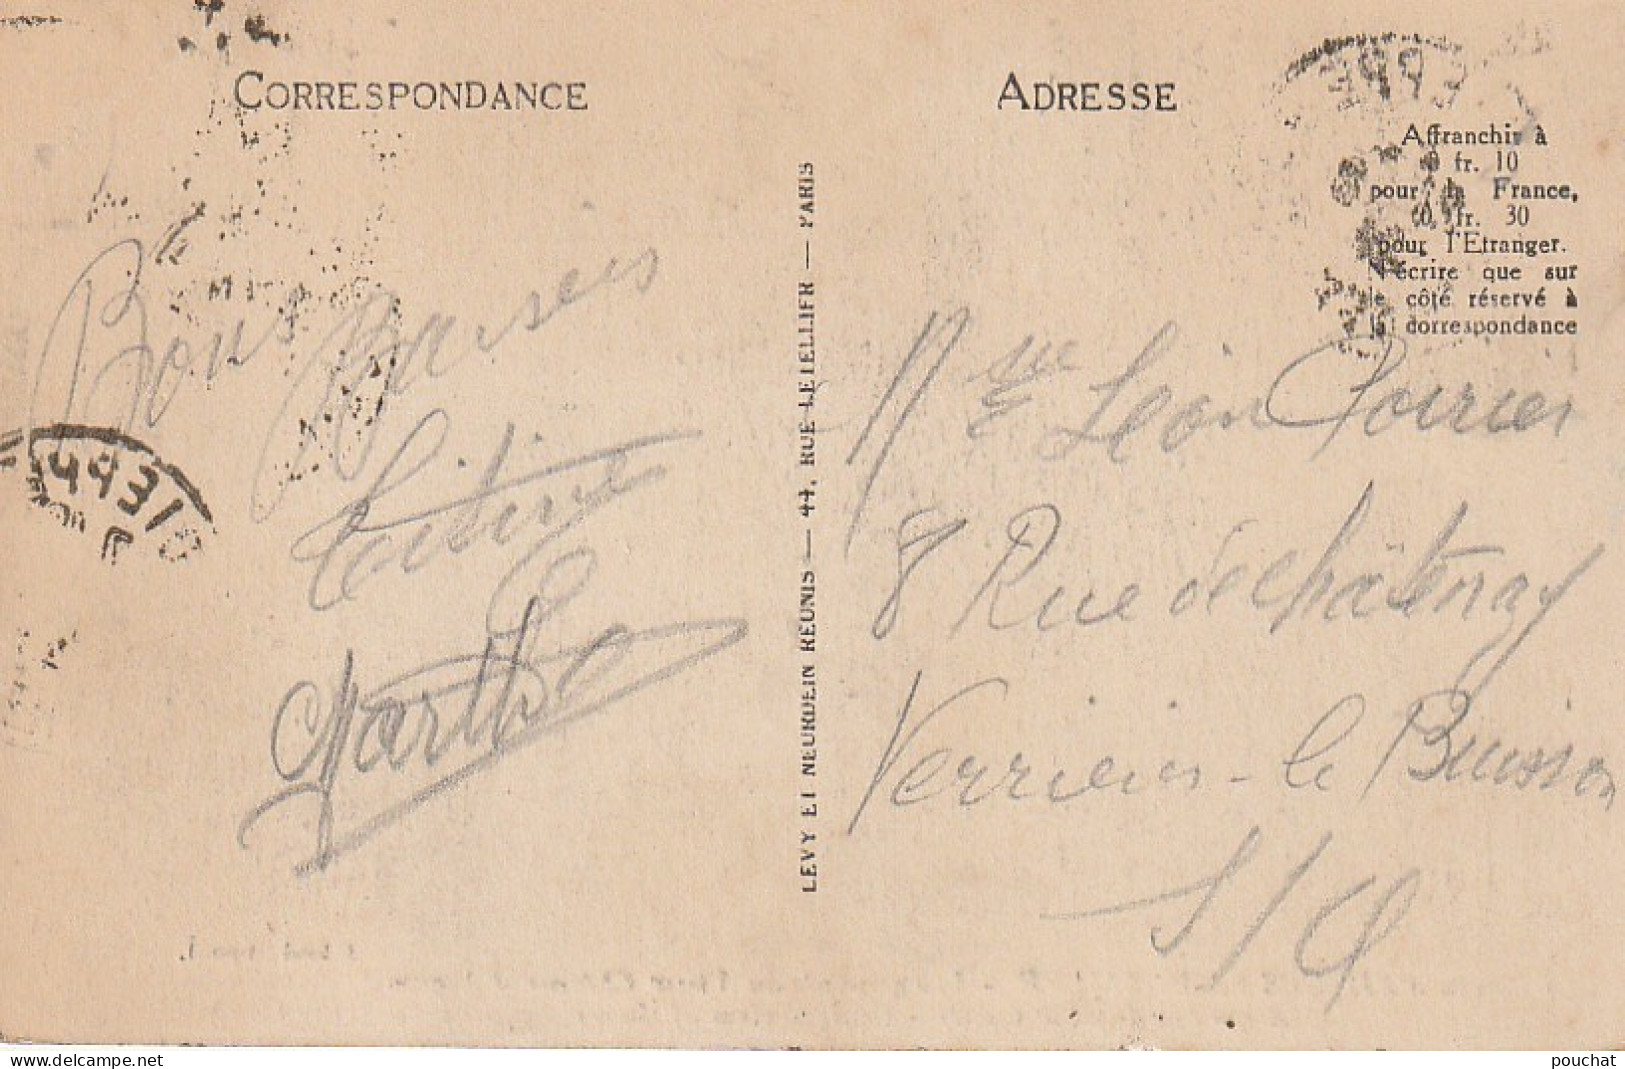 CORRESPONDANCE
Bons Baisers
Titine
Marthe
LEVY ET NEURDEIN REUNIS — 44, RUE LETELLIER — PARIS
ADRESSE
Affranchir à
0 fr. 10
pour la France,
0 fr. 30
pour l'Etranger.
N'écrire que sur
le côté réservé à
la correspondance
Mme Léon Poirier
8 Rue de Châtenay
Verrieres-le Buisson
S/O
delcampe.net
pouchat